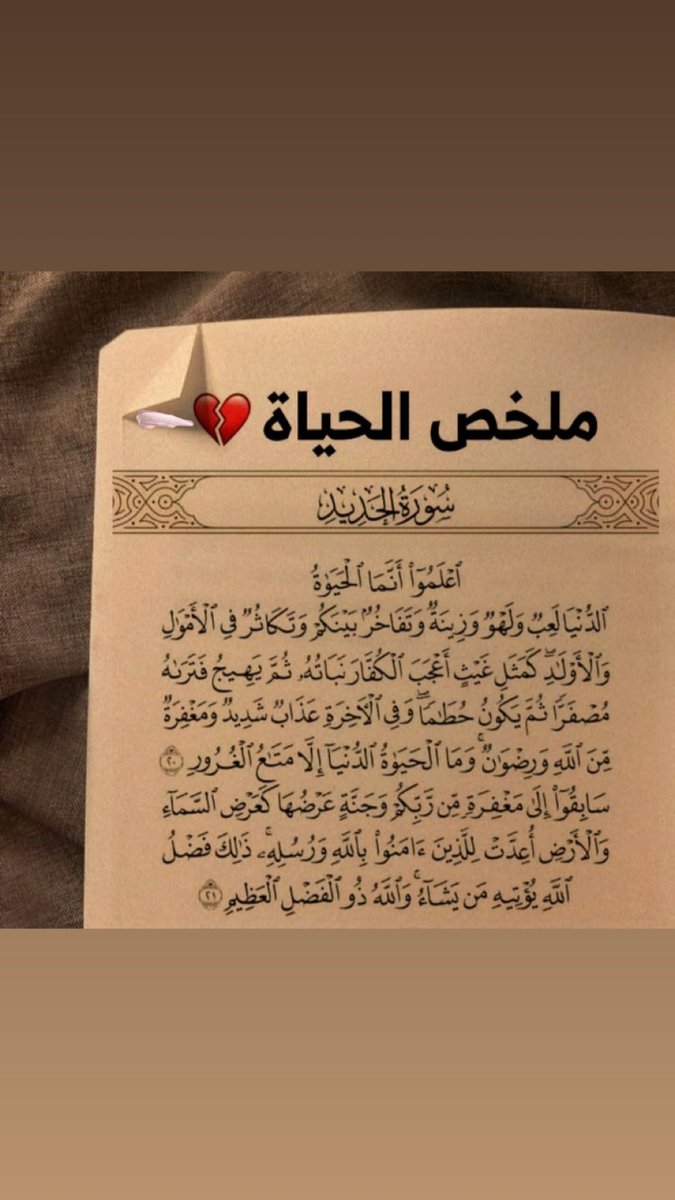 ملخص الحياة 💔
سُورَةُ الحَدِيدِ
ٱعْلَمُوٓا۟ أَنَّمَا ٱلْحَيَوٰةُ
ٱلدُّنْيَا لَعِبٌ وَلَهْوٌ وَزِينَةٌ وَتَفَاخُرٌۢ بَيْنَكُمْ وَتَكَاثُرٌ فِى ٱلْأَمْوَٰلِ
وَٱلْأَوْلَٰدِ ۖ كَمَثَلِ غَيْثٍ أَعْجَبَ ٱلْكُفَّارَ نَبَاتُهُۥ ثُمَّ يَهِيجُ فَتَرَىٰهُ
مُصْفَرًّا ثُمَّ يَكُونُ حُطَٰمًا ۖ وَفِى ٱلْءَاخِرَةِ عَذَابٌ شَدِيدٌ وَمَغْفِرَةٌ
مِّنَ ٱللَّهِ وَرِضْوَٰنٌ ۚ وَمَا ٱلْحَيَوٰةُ ٱلدُّنْيَآ إِلَّا مَتَٰعُ ٱلْغُرُورِ ٢٠
سَابِقُوٓا۟ إِلَىٰ مَغْفِرَةٍ مِّن رَّبِّكُمْ وَجَنَّةٍ عَرْضُهَا كَعَرْضِ ٱلسَّمَآءِ
وَٱلْأَرْضِ أُعِدَّتْ لِلَّذِينَ ءَامَنُوا۟ بِٱللَّهِ وَرُسُلِهِۦ ۚ ذَٰلِكَ فَضْلُ
ٱللَّهِ يُؤْتِيهِ مَن يَشَآءُ ۚ وَٱللَّهُ ذُو ٱلْفَضْلِ ٱلْعَظِيمِ ٢١